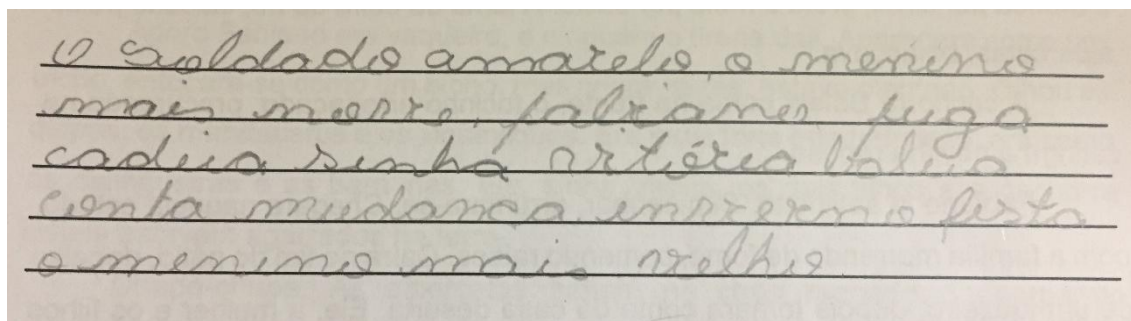 O soldado amarelo, o menino
mais novo, fabiano, fuga
cadeia sinha vitória baleia
conta mudança inverno festa
o menino mais velho